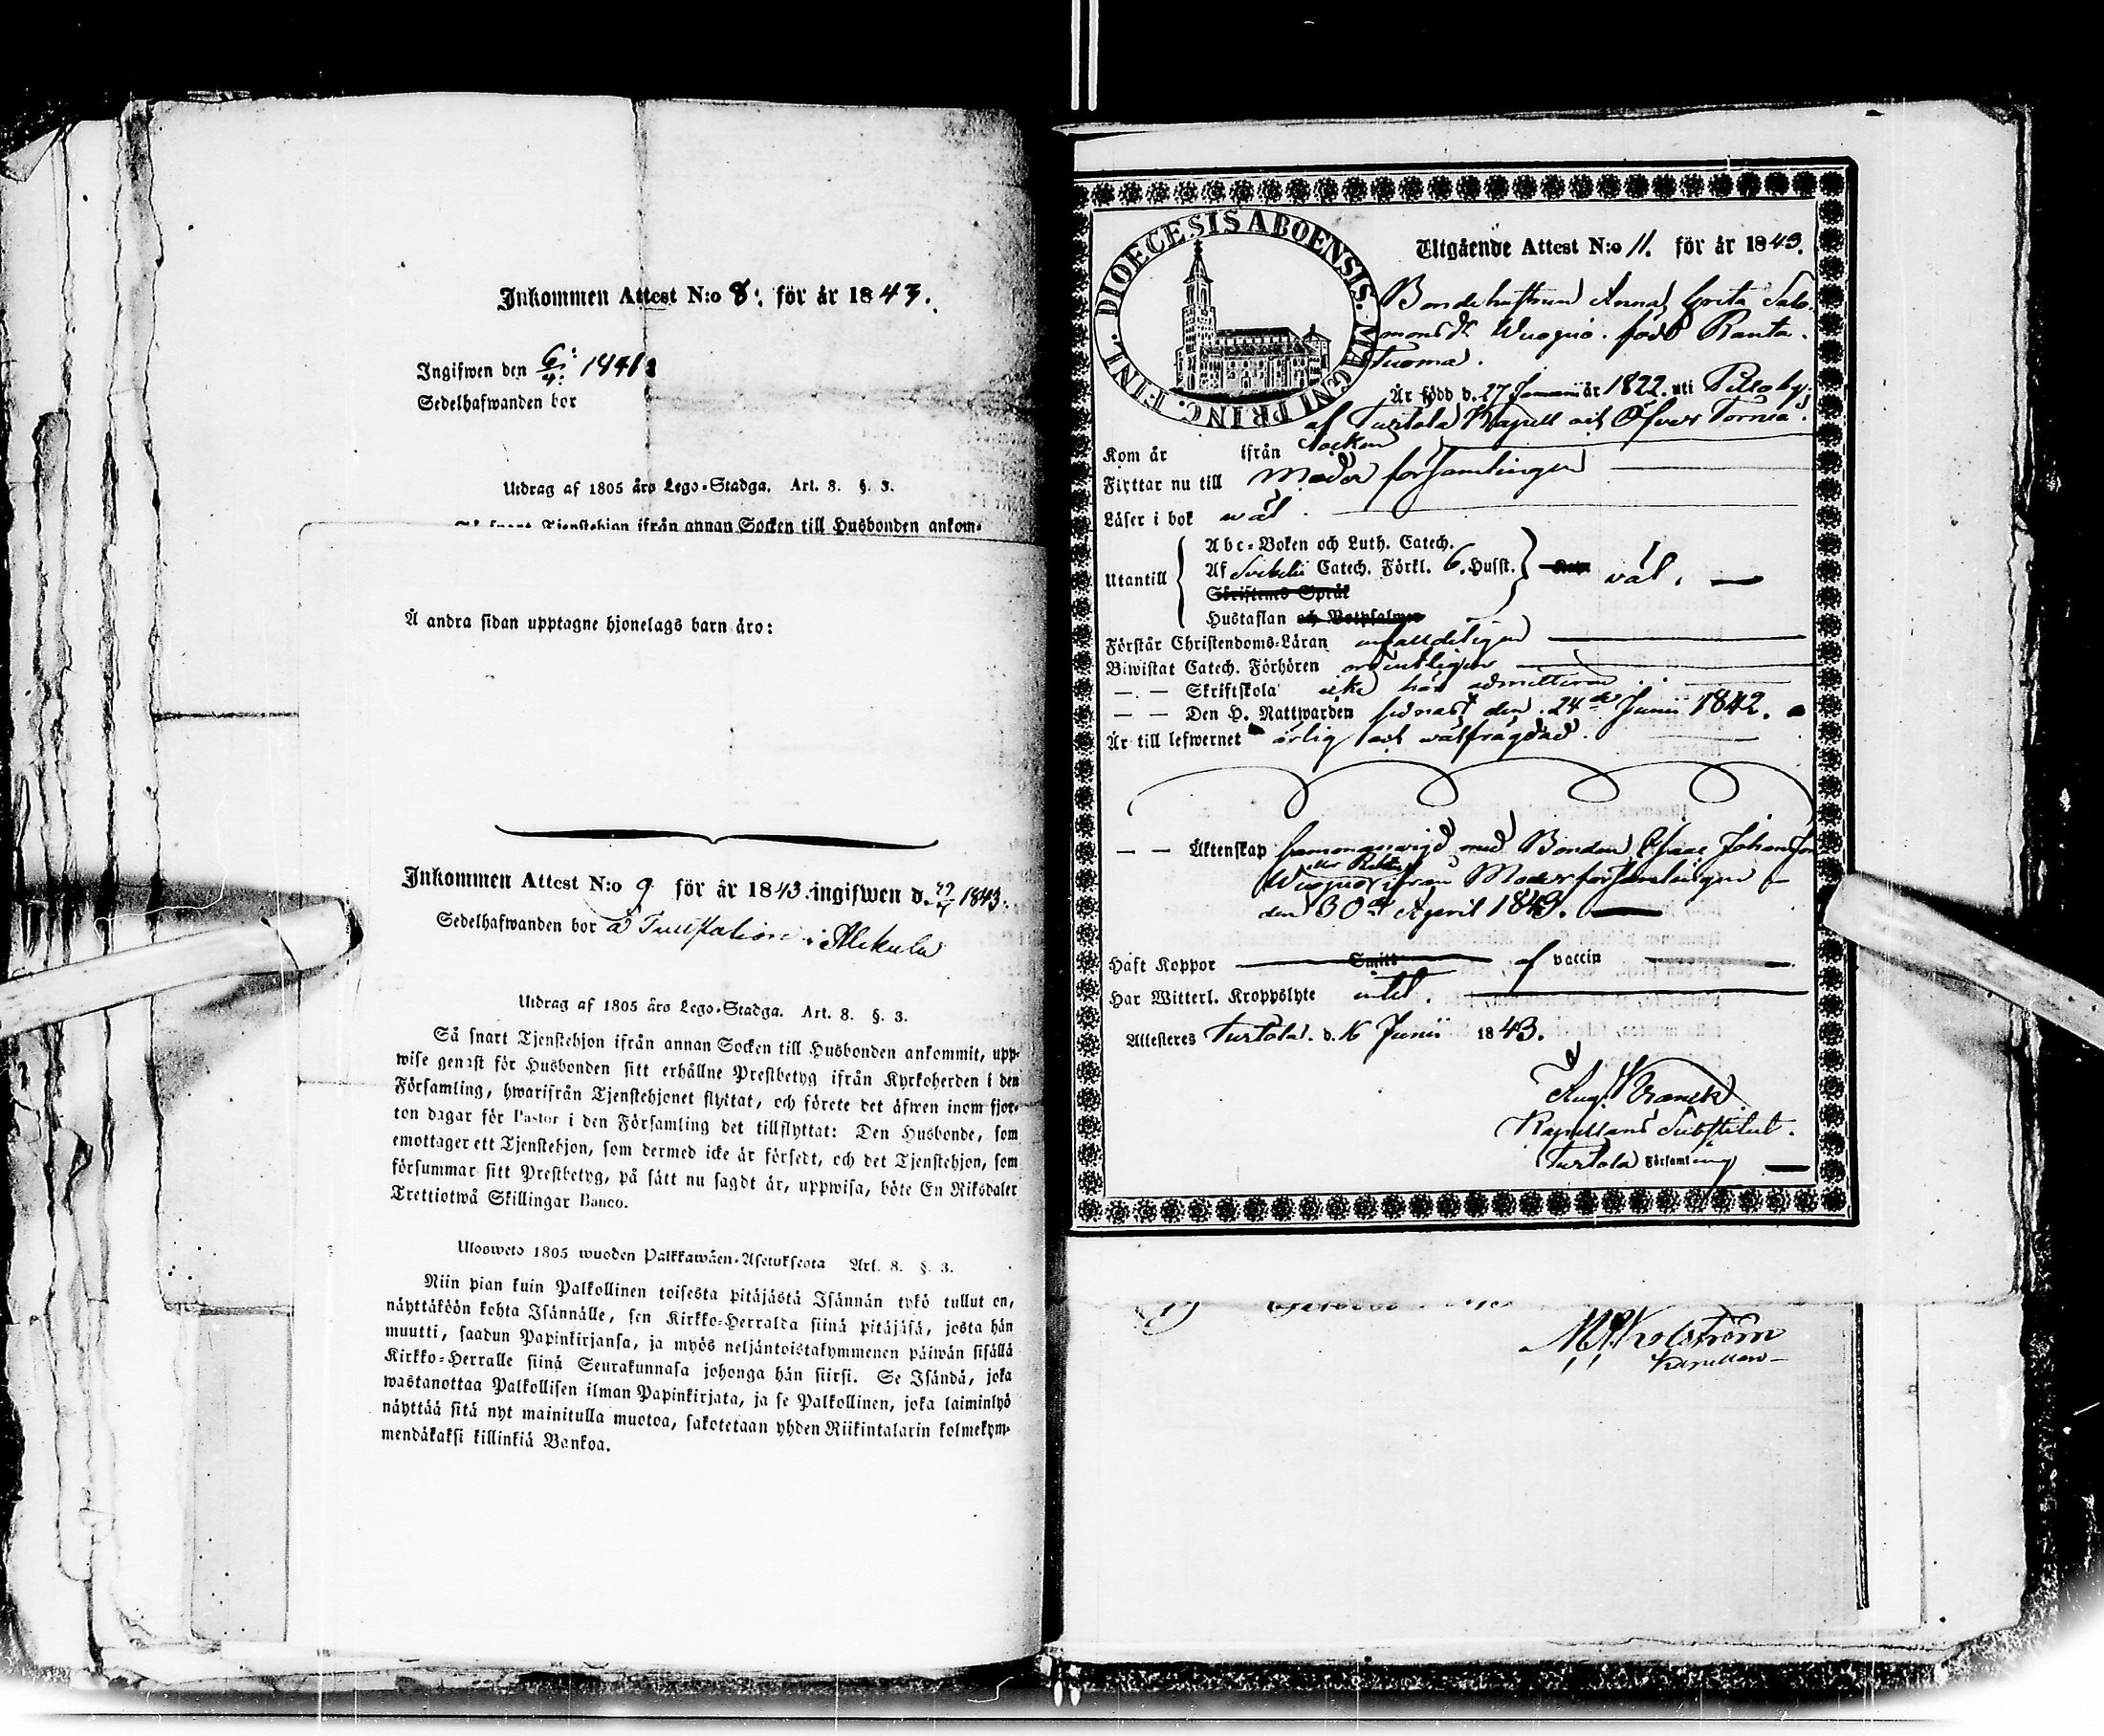 Inkommen Attest N:o 8. för år 1843.
Ingifwen den 6/4
Sedelhafwanden bor
Utdrag af 1805 års Lego-Stadga. Art. 8. §. 3.
Så snart Tjenstehjon ifrån annan Socken till Husbonden ankom-
Å andra sidan upptagne hjonelags barn äro:
Inkommen Attest N:o 9 för år 1843. ingifwen d. 1843.
Sedelhafwanden bor å i Alkula
Utdrag af 1805 års Lego-Stadga. Art. 8. §. 3.
Så snart Tjenstehjon ifrån annan Socken till Husbonden ankommit, upp-
wise genast för Husbonden sitt erhållne Prestbetyg ifrån Kyrkoherden i den
Församling, hwarifrån Tjenstehjonet flyttat, och förete det äfwen inom fjor-
ton dagar för Pastor i den Församling det tillflyttat: Den Husbonde, som
emottager ett Tjenstehjon, som dermed icke är försedt, och det Tjenstehjon, som
försummar sitt Prestbetyg, på sätt nu sagdt är, uppwisa, böte En Riksdaler
Trettiotwå Skillingar Banco.
Ulosweto 1805 wuoden Palkkawäen-Asetuksesta Art. 8. §. 3.
Niin pian kuin Palkollinen toisesta pitäjästä Isännän tykö tullut on,
näyttäköön kohta Isännälle, sen Kirkko-Herralda siinä pitäjäsä, josta hän
muutti, saadun Papinkirjansa, ja myös neljäntoistakymmenen päiwän sisällä
Kirkko-Herralle siinä Seurakunnasa johonga hän siirsi. Se Isändä, joka
wastanottaa Palkollisen ilman Papinkirjata, ja se Palkollinen, joka laiminlyö
näyttää sitä nyt mainitulla muotoa, sakotetaan yhden Riikintalarin kolmekym-
mendäkaksi killinkiä Bankoa.
DIOECESIS ABOENSIS. MAGNI PRINC. FINL.
Utgående Attest N:o 11. för år 1843.
Bondehustrun Anna Greta Salo-
monsdr Wuopio. född Ranta-
Tuoma.
Är född d. 27 Januarii år 1822. uti Pello by
af Turtola Kapell och Öfver Tornea
Kom år ifrån Socken
Flyttar nu till Moder församlingen
Läser i bok wäl.
Utantill Abc-Boken och Luth. Catech.
Af Svebelii Catech. Förkl. 6. Husst. väl.
Skriftenes Språk
Hustaflan och Botpsalmer
Förstår Christendoms-Läran enfalldeligen
Biwistat Catech. Förhören ordentligen
— — Skriftskola icke här admitterad
— — Den H. Nattwarden sednast den 24de Junii 1842.
Är till lefwernet ärlig och wälfrägdad.
— — Äktenskap sammanwigd med Bonden Isaac Johansson
Wuopio ifrån Moderförsamlingen
den 30de April 1843.
Haft Koppor Smitt af vaccin
Har Witterl. Kroppslyte intet.
Attesteres Turtola. d. 16 Junii 1843.
Aug. Kranck
Kapellans Substitut.
Turtola Församling
Kapellan